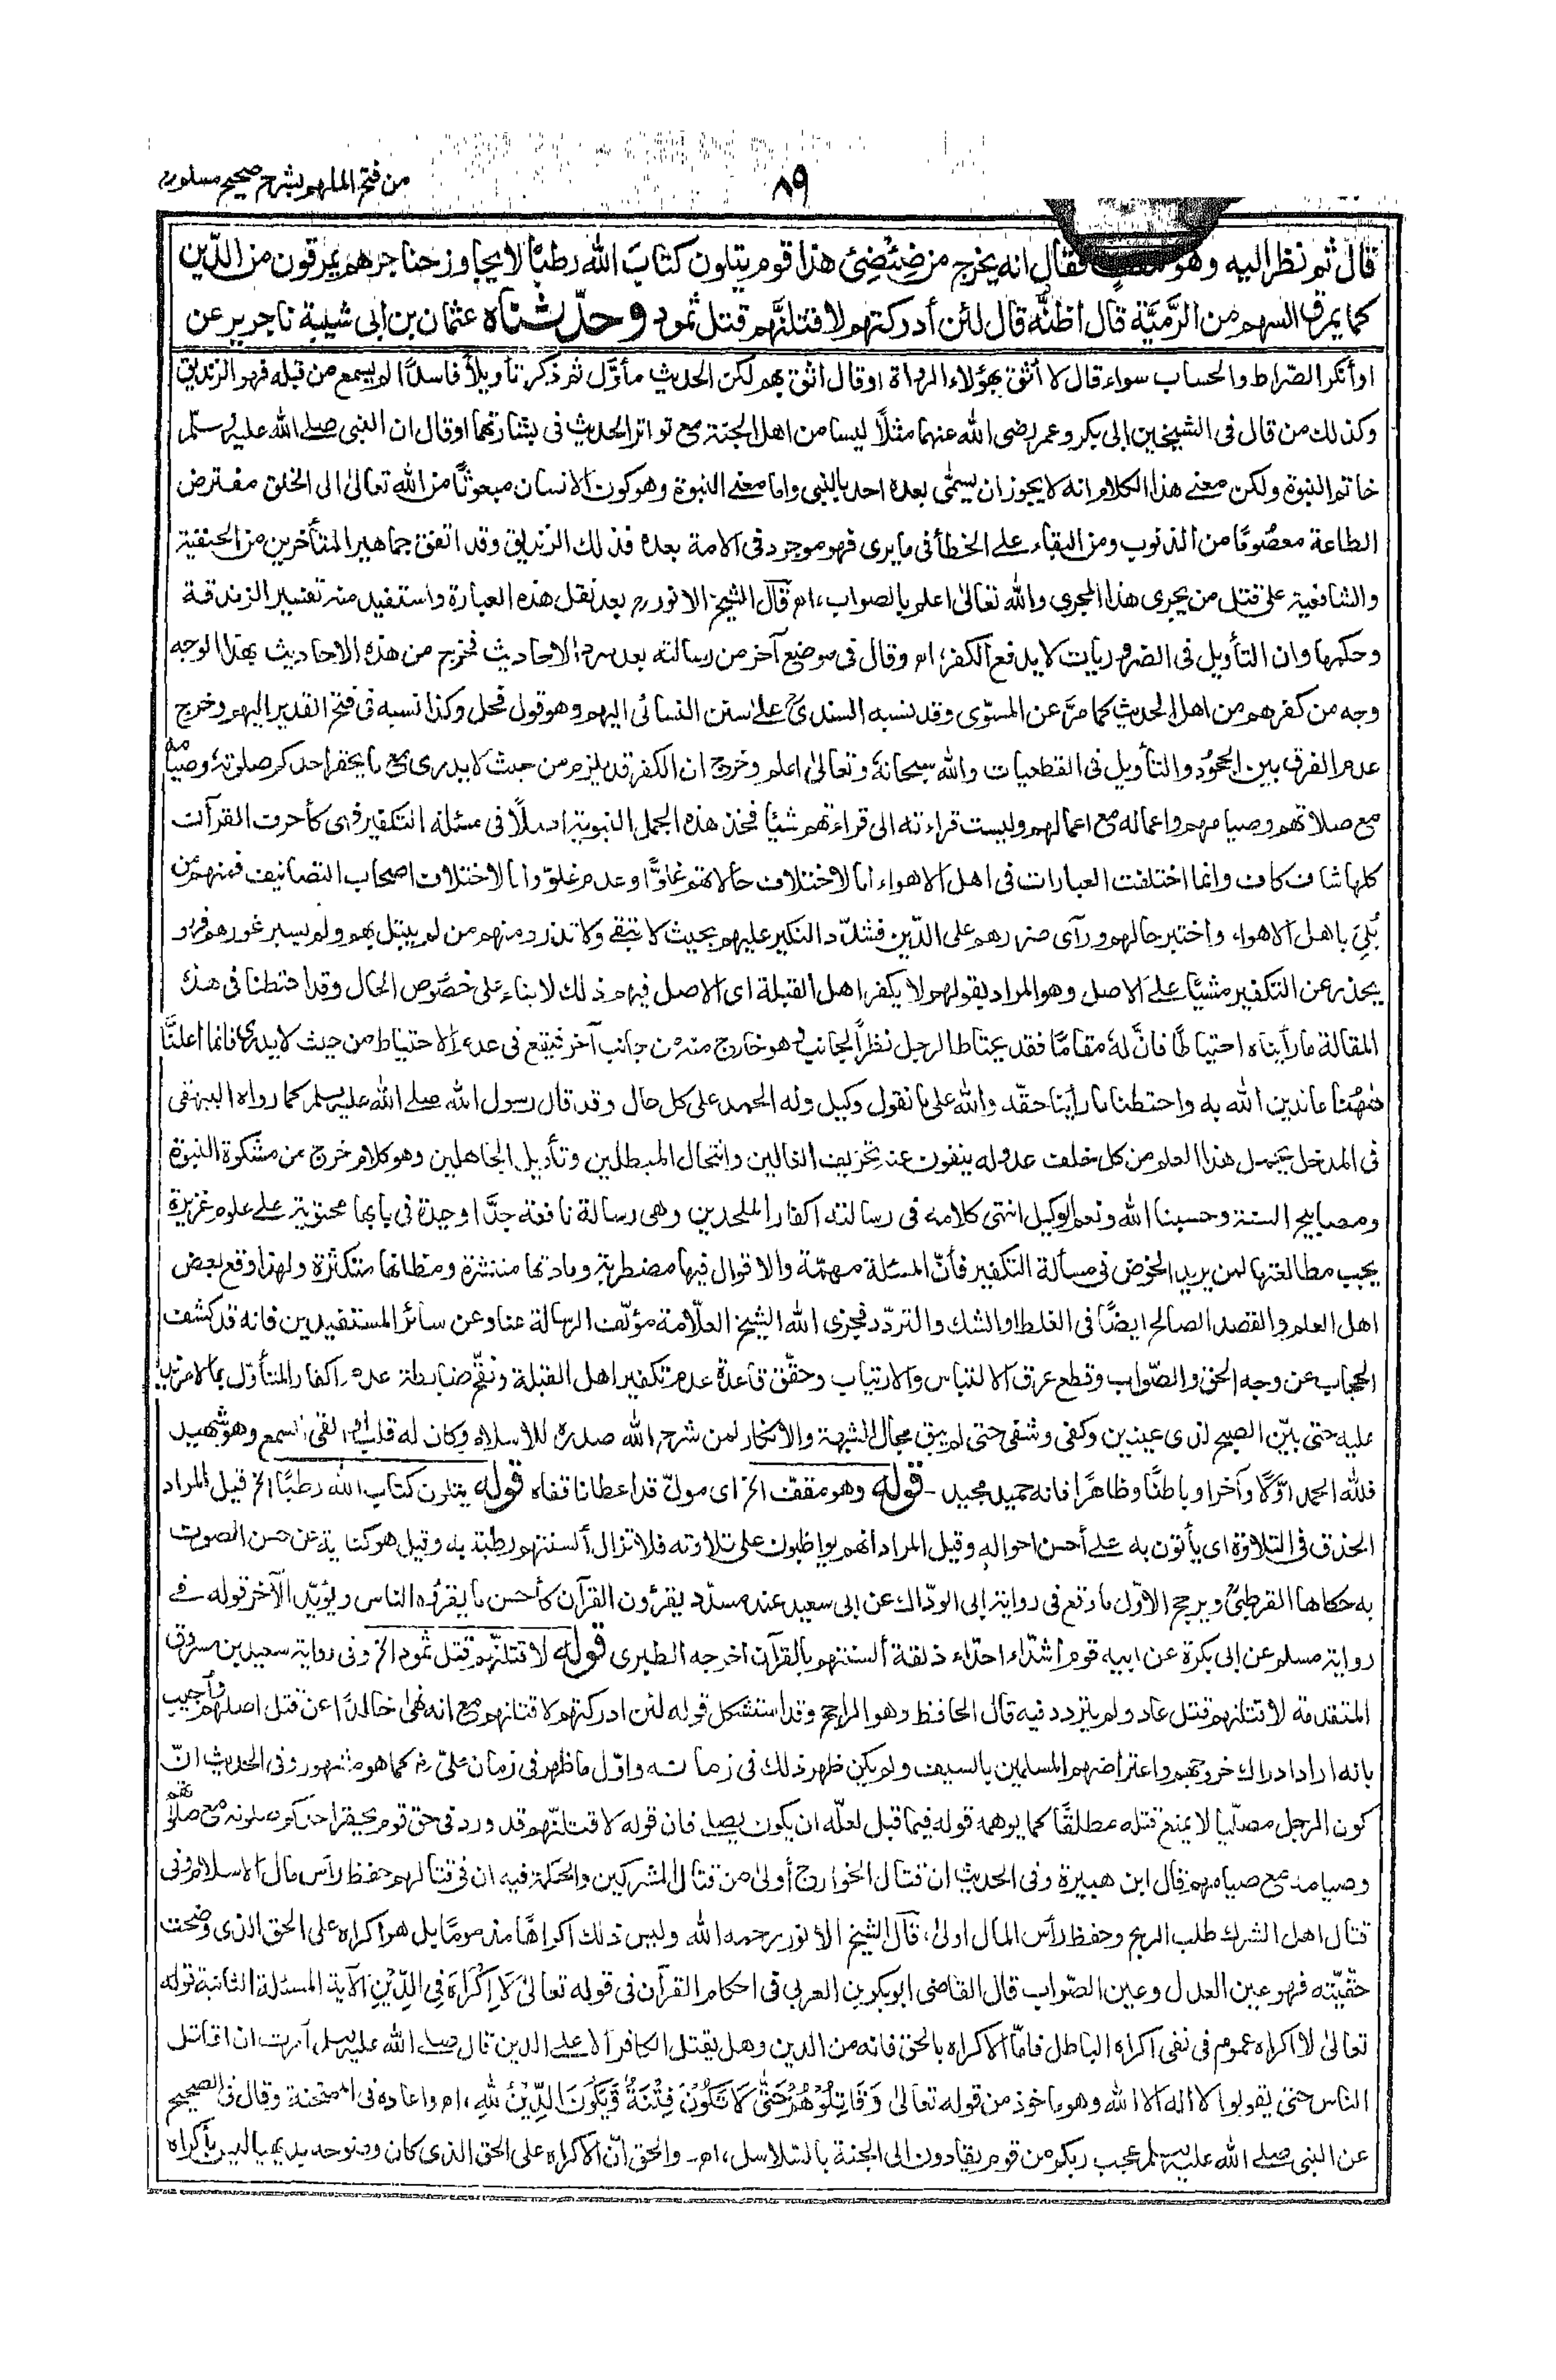 من فتح الملهم بشرح صحيح مسلم
٨٩
قال ثم نظر اليه وهو مقفٍ فقال انه يخرج من ضِئْضِئ هذا قوم يتلون كتابَ الله رطبًا لا يجاوز حناجرهم يمرقون من الدّين
كما يمرق السهم من الرَّمِيَّة قال اظنّه قال لئن أدركتهم لاقتلنَّهم قتل ثمود وحدّثناه عثمان بن ابى شيبة نا جرير عن
او أنكر الصّراط والحساب سواء قال لا أثق بهؤلاء الرواة او قال اثق بهم لكن الحديث مأوّل ثم ذكر تأويلاً فاسدًا لم يسمع من قبله فهو الزنديق
وكذلك من قال فى الشيخين ابى بكر وعمر رضى الله عنهما مثلاً ليسا من اهل الجنة مع تواتر الحديث فى بشارتهما او قال ان النبى صلے الله عليه وسلّم
خاتم النبوة ولكن معنے هذا الكلام انه لا يجوز ان يسمّٰى بعده احد بالنبى واما معنے النبوة وهو كون الانسان مبعوثًا من الله تعالىٰ الى الخلق مفترض
الطاعة معصُومًا من الذنوب ومن البقاء علے الخطأ فى ما يرى فهو موجود فى الامة بعده فذلك الزنديق وقد اتفق جماهير المتأخرين من الحنفية
والشافعية على قتل من يجرى هذا المجرى والله تعالىٰ اعلم بالصواب، اھ قال الشيخ الانور رح بعد نقل هذه العبارة واستفيد منه تفسير الزندقة
وحكمها وان التأويل فى الضروريات لا يدفع الكفر، اھ وقال فى موضع آخر من رسالته بعد سرد الاحاديث فخرج من هذه الاحاديث بهذا الوجه
وجه من كفرهم من اهل الحديث كما مرّ عن المسوّى وقد نسبه السندىّ علے سنن النسائى اليهم وهو قول فحل وكذا نسبه فى فتح القدير اليهم وخرج
عدم الفرق بين الجحُود والتأويل فى القطعيات والله سبحانهٗ وتعالىٰ اعلم وخرج ان الكفر قد يلزم من حيث لا يدرى مع ما يحقر احدكم صلوته وصيامه
مع صلاتهم وصيامهم واعماله مع اعمالهم وليست قراءته الى قراءتهم شيئا فخذ هذه الجمل النبوية اصلاً فى مسئلة التكفير فهى كأحرف القرآن
كلها شاف كاف وانما اختلفت العبارات فى اهل الاهواء اما لاختلاف حالاتهم غلوًّا وعدم غلوّ واما لاختلاف اصحاب التصانيف فمنهم من
بُلِىَ باهل الاهواء واختبر حالهم ورآى ضررهم على الدّين فشدّد النكير عليهم بحيث لا تبقے ولا تذر ومنهم من لم يبتل بهم ولم يسبر غورهم فهو
يحذر عن التكفير مشيًا علے الاصل وهو المراد بقولهم لا يكفر اهل القبلة اى الاصل فيهم ذلك لا بناء على خصُوص الحال وقد احتطنا فى هذه
المقالة ما رأيناه احتياطًا فانّ لهٗ مقامًا فقد يحتاط الرجل نظراً لجانب وهو خارج منه من جانب آخر فيقع فى عدم الاحتياط من حيث لا يدرى فانما اعلنّا
ههُنا ما ندين الله به واحتطنا ما رأينا حقّه والله على ما نقول وكيل وله الحمد على كل حال وقد قال رسول الله صلے الله عليه وسلم كما رواه البيهقى
فى المدخل يحمل هذا العلم من كل خلف عدوله ينفون عنه تحريف الغالين وانتحال المبطلين وتأويل الجاهلين وهو كلام خرج من مشكوة النبوة
ومصابيح السنة وحسبنا الله ونعم الوكيل انتهى كلامه فى رسالته اكفار الملحدين وهى رسالة نافعة جدًّا وحيدة فى بابها محتوية علے علوم غزيرة
يجب مطالعتها لمن يريد الخوض فى مسألة التكفير فأنّ المسئلة مهمّة والاقوال فيها مضطربة ومادتها منتشرة ومظانها متكثرة ولهذا وقع بعض
اهل العلم والقصد الصالح ايضًا فى الغلط او الشك والتردّد فجزى الله الشيخ العلّامة مؤلّف الرسالة عنا وعن سائر المستفيدين فانه قد كشف
الحجاب عن وجه الحق والصّواب وقطع عرق الالتباس والارتياب وحقّق قاعدة عدم تكفير اهل القبلة ونقّح ضابطة عدم اكفار المتأوّل بما لا مزيد
عليه حتى بيّن الصبح لذى عينين وكفى وشفى حتى لم يبق مجال للشبهة والانكار لمن شرح الله صدره للاسلام وكان له قلب او القى السمع وهو شهيد
فللّٰه الحمد اوّلاً وآخرا وباطنًا وظاهرًا فانه حميد مجيد - قوله وهو مقفف الخ اى مولّ قد اعطانا قفاه قوله يتلون كتاب الله رطبًا الخ قيل المراد
الحذق فى التلاوة اى يأتون به علے أحسن احواله وقيل المراد انهم يواظبون على تلاوته فلا تزال ألسنتهم رطبة به وقيل هو كناية عن حسن الصوت
به حكاها القرطبىّ ويرجح الاوّل ما وقع فى رواية ابى الودّاك عن ابى سعيد عند مسدّد يقرؤن القرآن كأحسن ما يقرؤه الناس ويؤيّد الآخر قوله فے
رواية مسلم عن ابى بكرة عن ابيه قوم اشدّاء احدّاء ذلقة ألسنتهم بالقرآن اخرجه الطبرى قوله لاقتلنّهم قتل ثمود الخ وفى رواية سعيد بن مسروق
المتقدمة لاقتلنهم قتل عاد ولم يتردد فيه قال الحافظ وهو الراجح وقد استشكل قوله لئن ادركتهم لاقتلنهم مع انه نهٰى خالدًا عن قتل اصلهم وأجيب
بانه اراد ادراك خروجهم واعتراضهم المسلمين بالسيف ولم يكن ظهر ذلك فى زمانه واوّل ما ظهر فى زمان علىّ رض كما هو مشهور وفى الحديث انّ
كون الرجل مصلّيا لا يمنع قتله مطلقًا كما يوهمه قوله فيما قبل لعلّه ان يكون يصلے فان قوله لاقتلنّهم قد ورد فى حق قوم يحقر احدكم صلوته مع صلوتهم
وصيامه مع صيامهم قال ابن هبيرة وفى الحديث ان قتال الخوارج أولىٰ من قتال المشركين والحكمة فيه ان فى قتالهم حفظ رأس مال الاسلام وفى
قتال اهل الشرك طلب الربح وحفظ رأس المال اولىٰ، قال الشيخ الانور رحمه الله وليس ذلك اكراهًا مذمومًا بل هو اكراه على الحق الذى وضحت
حقّيّته فهو عين العدل وعين الصّواب قال القاضى ابو بكر بن العربى فى احكام القرآن فى قوله تعالىٰ لَا إِكْرَاهَ فِى الدِّيْنِ الآية المسئلة الثانية قوله
تعالىٰ لا اكراه عموم فى نفى اكراه الباطل فامّا الاكراه بالحق فانه من الدين وهل يقتل الكافر الا علے الدين قال صلے الله عليه وسلم أمرت ان اقاتل
الناس حتى يقولوا لا اله الا الله وهو ماخوذ من قوله تعالىٰ وَقَاتِلُوْهُمْ حَتّٰى لَا تَكُوْنَ فِتْنَةٌ وَّيَكُوْنَ الدِّيْنُ لِلّٰهِ، اھ واعاده فى الممتحنة وقال فى الصحيح
عن النبى صلے الله عليه وسلم عجب ربكم من قوم يقادون الى الجنة بالسّلاسل، اھ- والحق انّ الاكراه على الحق الذى كان وضوحه بديهيا ليس باكراه